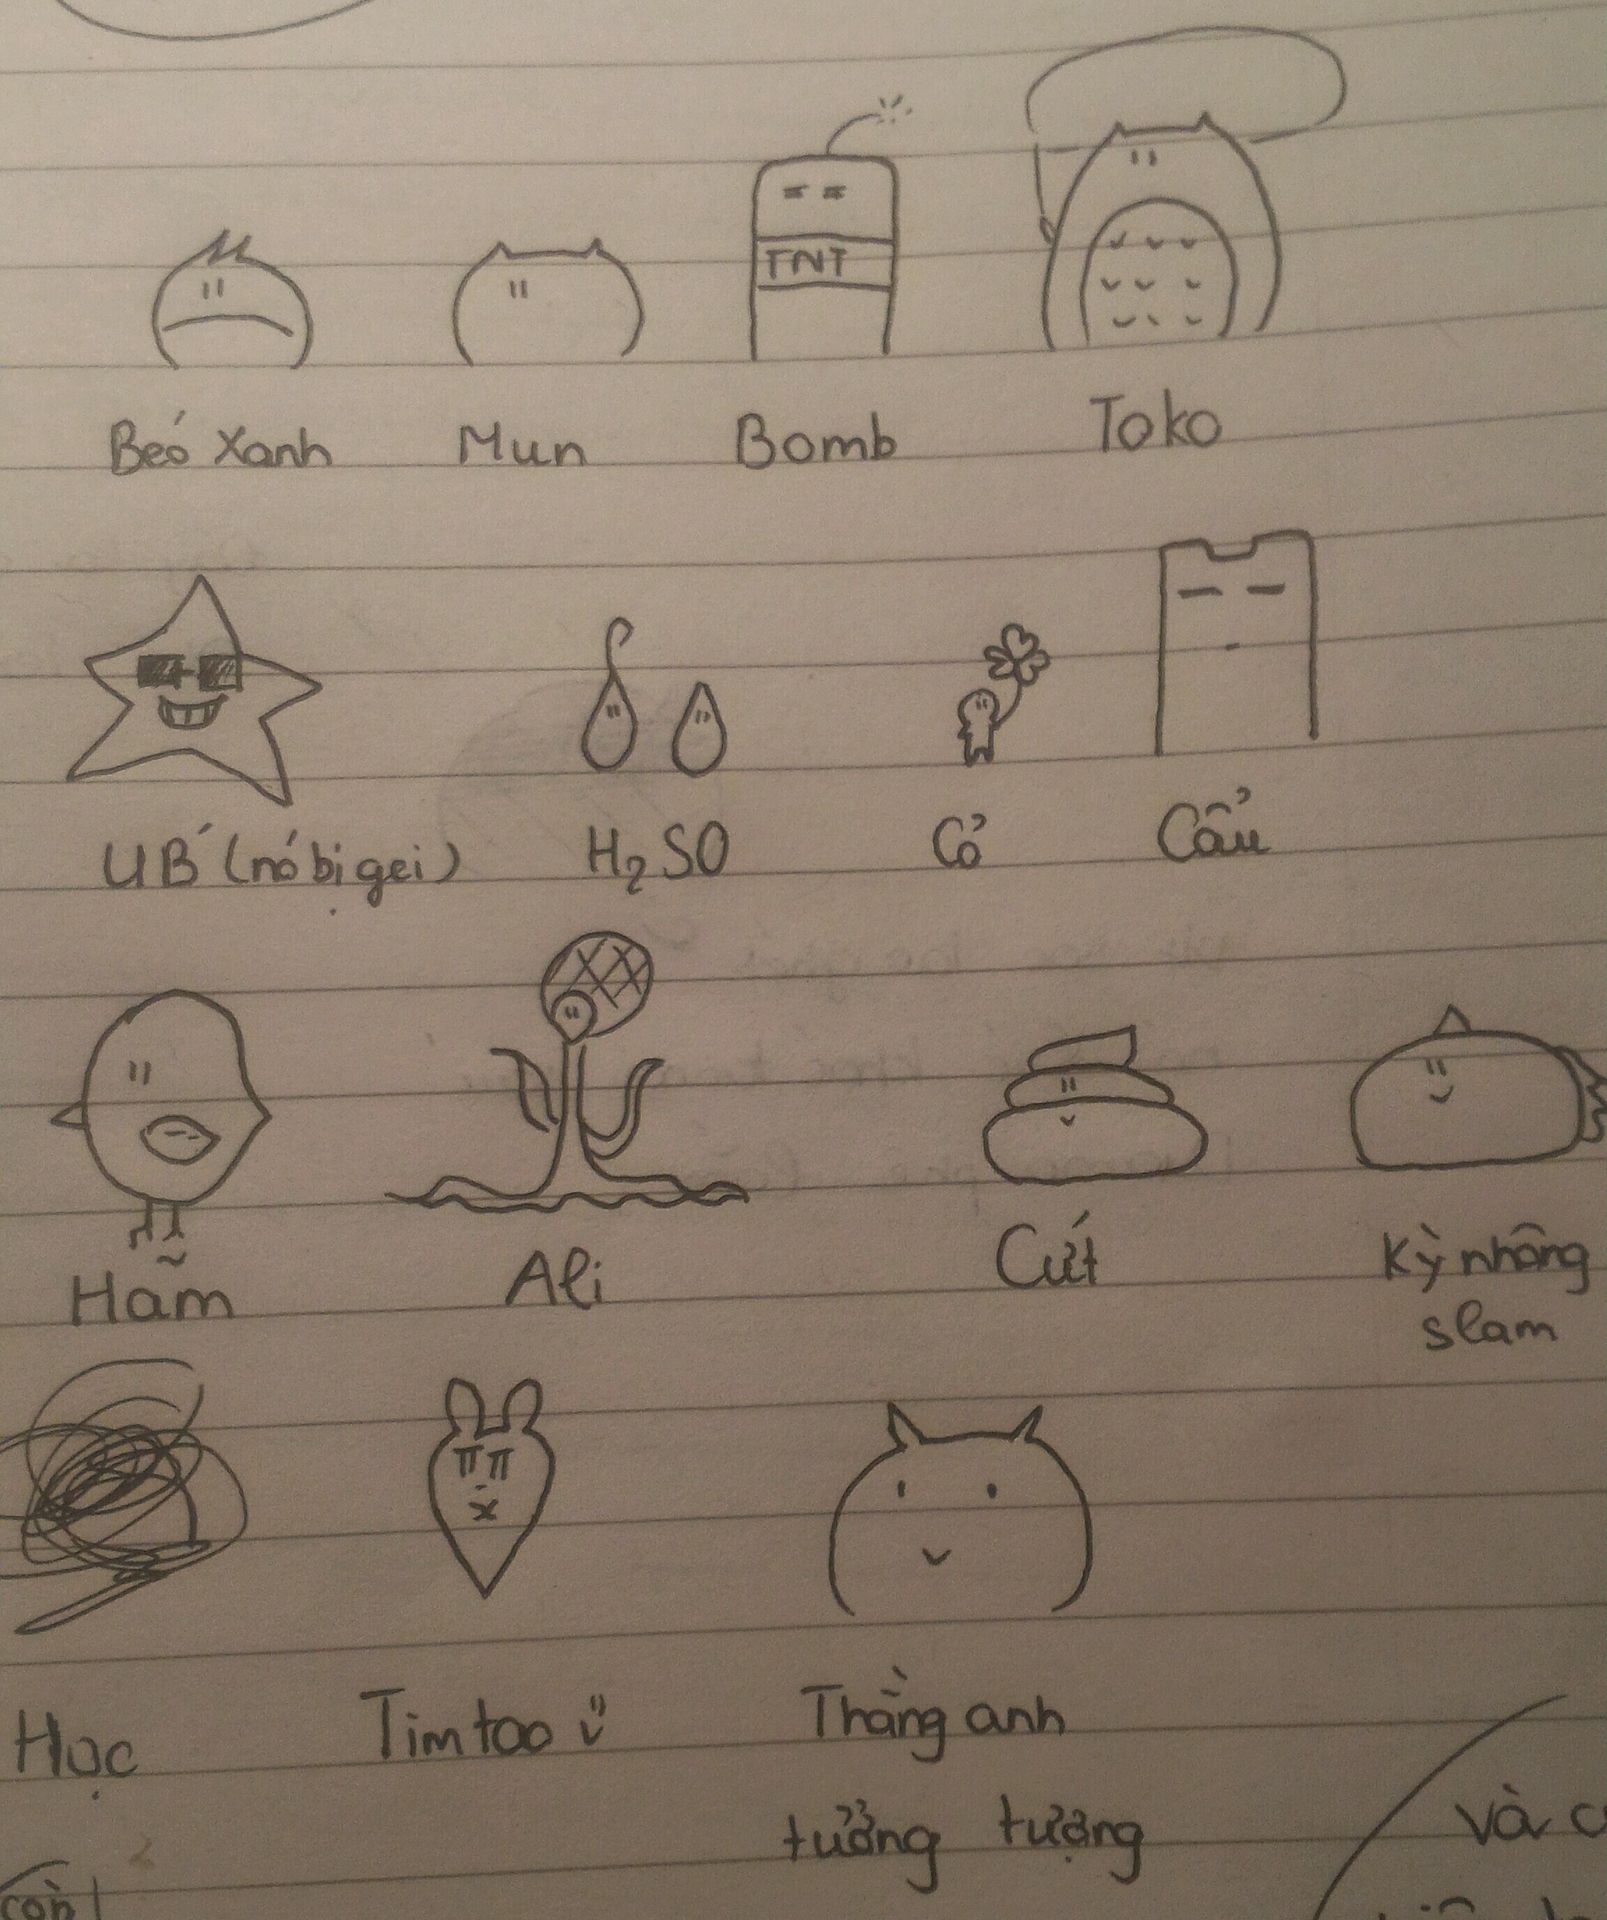 TNT
Beó Xanh Mun Bomb Toko
UB´ (nó bị gei) H₂SO Cỏ Cẩu
Hãm Ali Cứt Kỳ nhông
slam
Học Tim tao Thằng anh
tưởng tượng
và c
còn